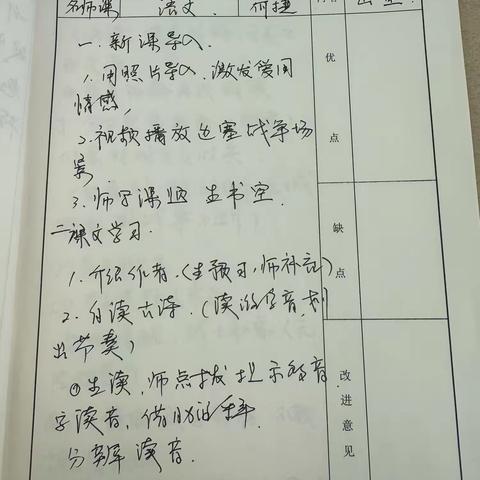 名师课 语文 何捷
一、新课导入
1、用照片导入,激发爱国
情感,
2、视频播放边塞战争场
景
3、师写课题 生书空.
二课文学习.
1、介绍作者.(生预习,师补充)
2、自读古诗.(读准字音,划
出节奏)
①生读,师点拨提示多音
字读音,借助
分辨读音.
优
点
缺
点
改
进
意
见